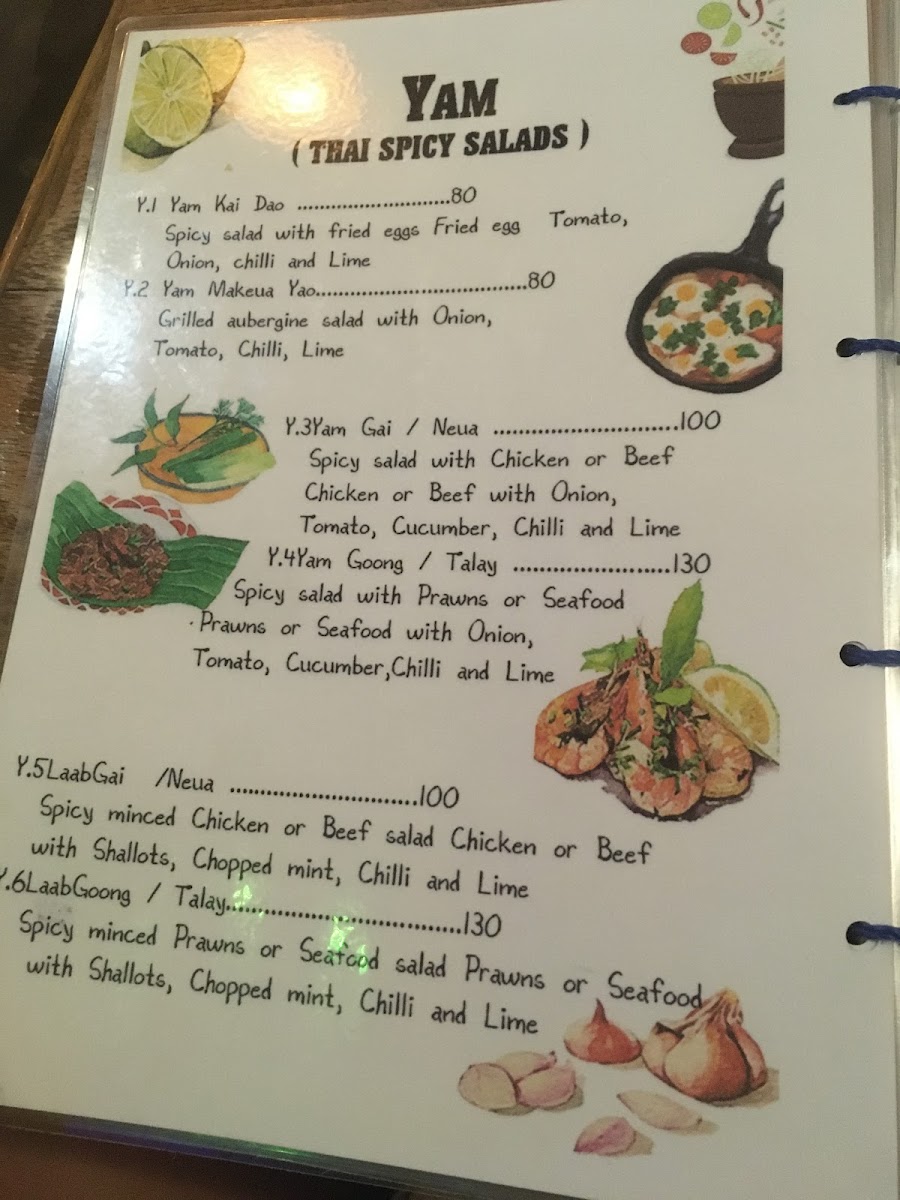 YAM
( THAI SPICY SALADS )
Y.1 Yam Kai Dao ...........................80
Spicy salad with fried eggs Fried egg Tomato,
Onion, chilli and Lime
Y.2 Yam Makeua Yao.....................................80
Grilled aubergine salad with Onion,
Tomato, Chilli, Lime
Y.3Yam Gai / Neua ............................100
Spicy salad with Chicken or Beef
Chicken or Beef with Onion,
Tomato, Cucumber, Chilli and Lime
Y.4Yam Goong / Talay ........................130
Spicy salad with Prawns or Seafood
Prawns or Seafood with Onion,
Tomato, Cucumber,Chilli and Lime
Y.5LaabGai /Neua .............................100
Spicy minced Chicken or Beef salad Chicken or Beef
with Shallots, Chopped mint, Chilli and Lime
Y.6LaabGoong / Talay....................................130
Spicy minced Prawns or Seafood salad Prawns or Seafood
with Shallots, Chopped mint, Chilli and Lime